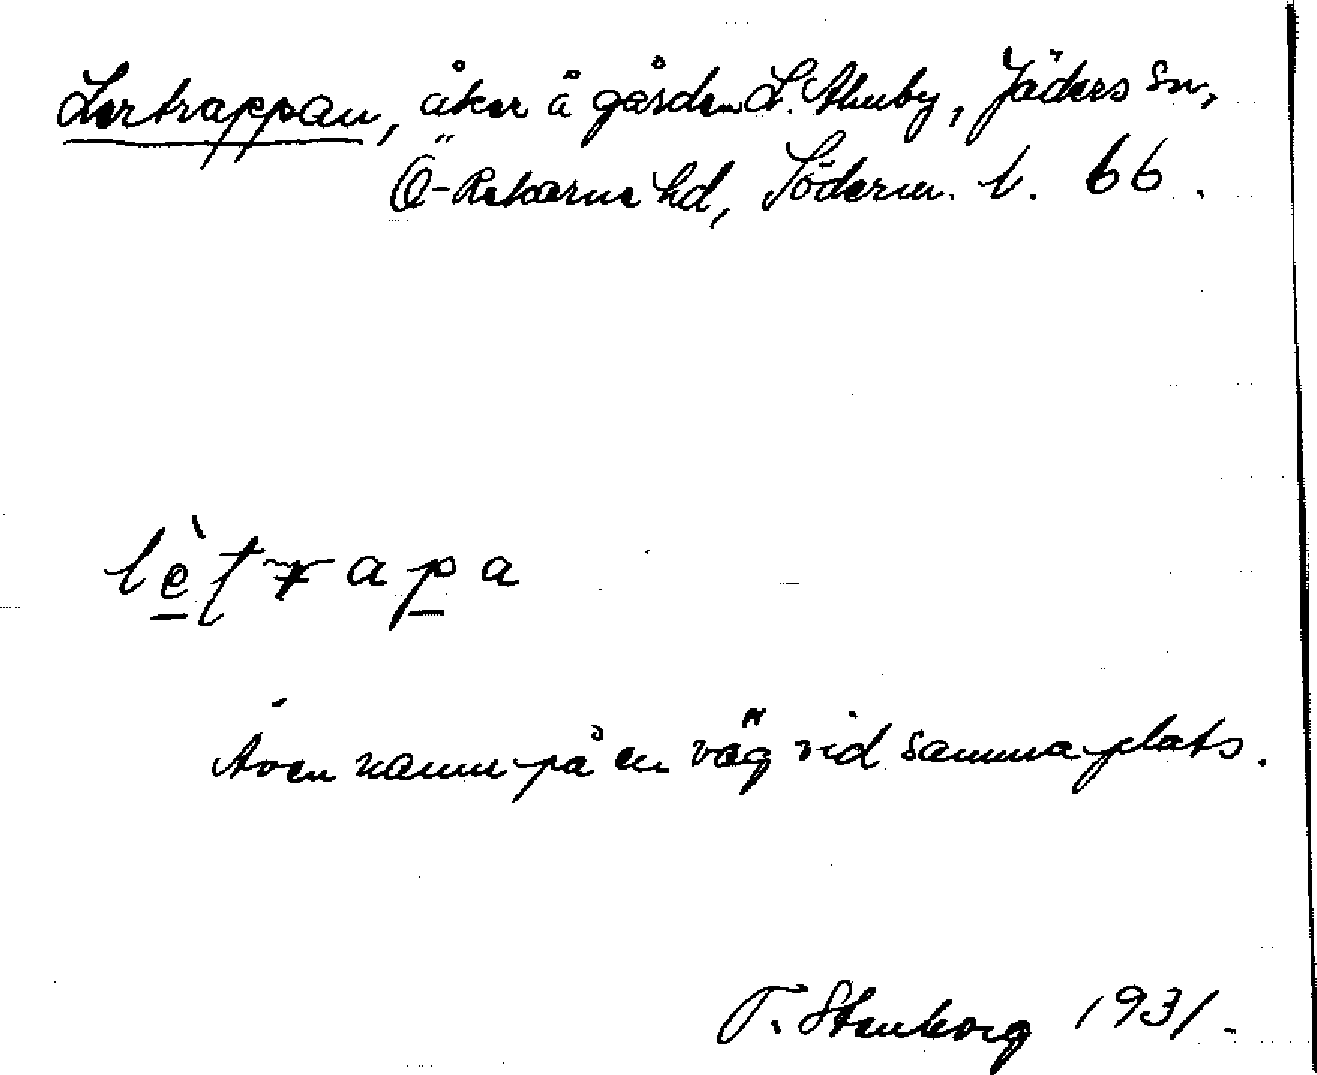 Lertrappan, åker å gården L. Åkeby, Jäders sn,
Ö-Rekarne hd, Söderm. l. 66.
lètrapa
Även namn på en väg vid samma plats.
T. Stenborg 1931.